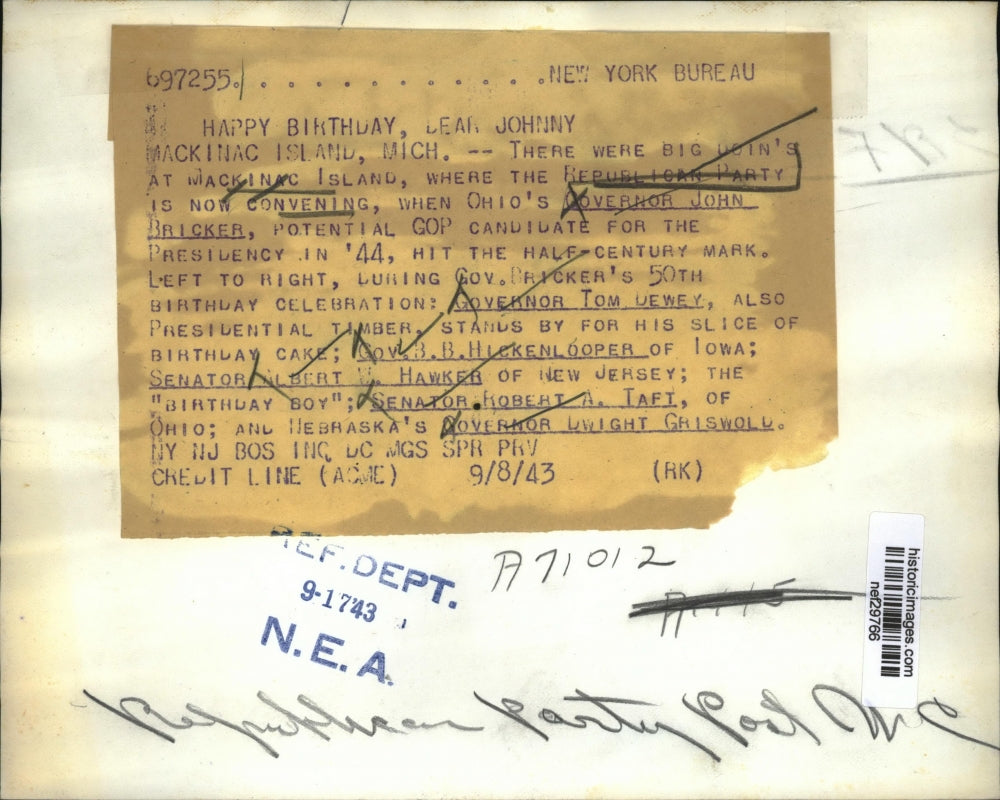 697255. . . . . . . . . . . . .NEW YORK BUREAU
HAPPY BIRTHDAY, DEAR JOHNNY
MACKINAC ISLAND, MICH. -- THERE WERE BIG DOIN'S
AT MACKINAC ISLAND, WHERE THE REPUBLICAN PARTY
IS NOW CONVENING, WHEN OHIO'S GOVERNOR JOHN
BRICKER, POTENTIAL GOP CANDIDATE FOR THE
PRESIDENCY IN '44, HIT THE HALF-CENTURY MARK.
LEFT TO RIGHT, DURING GOV. BRICKER'S 50TH
BIRTHDAY CELEBRATION: GOVERNOR TOM DEWEY, ALSO
PRESIDENTIAL TIMBER, STANDS BY FOR HIS SLICE OF
BIRTHDAY CAKE; GOV. B.B. HICKENLOOPER OF IOWA;
SENATOR ALBERT W. HAWKER OF NEW JERSEY; THE
"BIRTHDAY BOY"; SENATOR ROBERT A. TAFT, OF
OHIO; AND NEBRASKA'S GOVERNOR DWIGHT GRISWOLD.
NY NJ BOS INQ DC MGS SPR PRV
CREDIT LINE (ACME) 9/8/43 (RK)
REF. DEPT.
9-1743
N.E.A.
A71012
historicimages.com
nef29766
Republican Party Post War